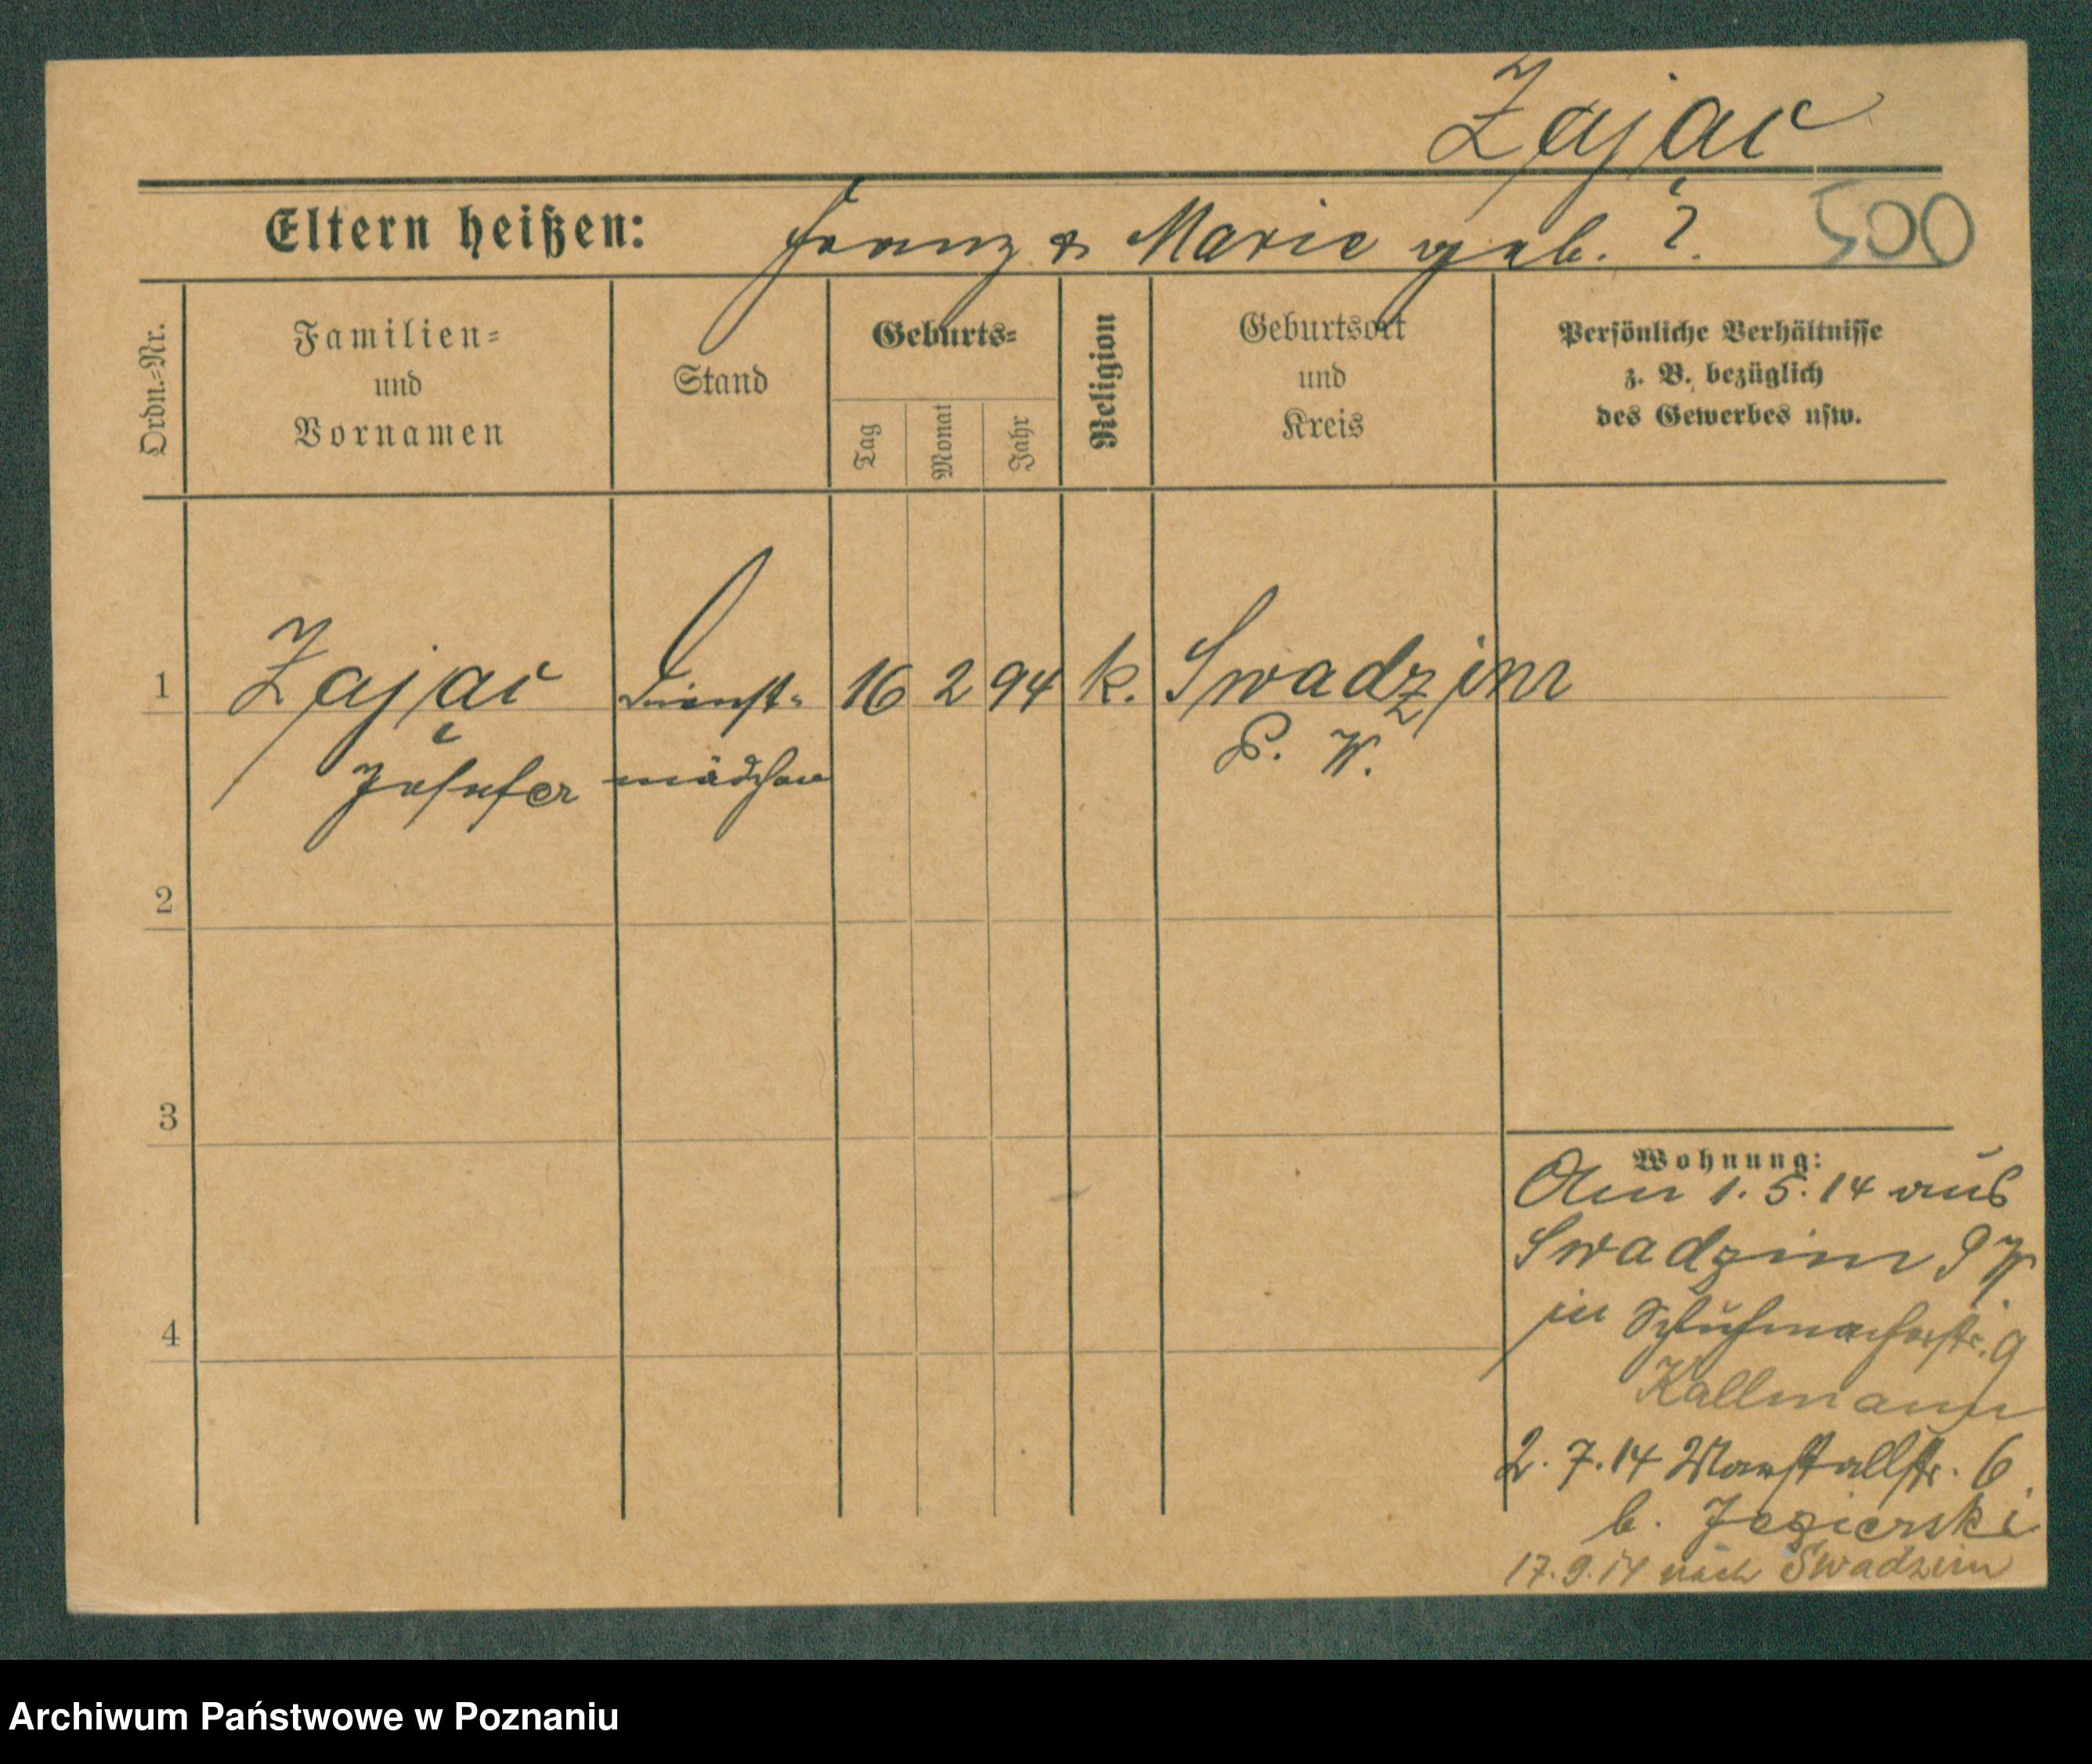 Zając
Eltern heißen: Franz & Marie geb. ? 500
Ordn.=Nr.
Familien=
und
Vornamen
Stand
Geburts=
Tag
Monat
Jahr
Religion
Geburtsort
und
Kreis
Persönliche Verhältnisse
z. B. bezüglich
des Gewerbes usw.
1 Zając Dienst= 16 2 94 k. Swadzim
mädchen P. W.
2
3
4
Wohnung:
Am 1. 5. 14 aus
Swadzim P W
in Schuhmacherstr. 9
Kallmann
2. 7. 14 Marstallstr. 6
b. Jezierski
17. 9. 14 nach Swadzim
Archiwum Państwowe w Poznaniu